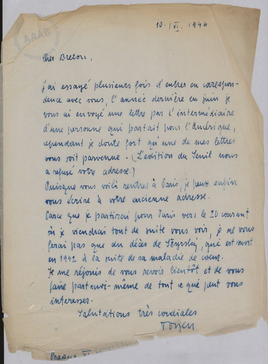 10. VI. 1946
Cher Breton,
J'ai essayé plusieurs fois d'entrer en correspon-
dance avec vous, l'année dernière en juin je
vous ai envoyé une lettre par l'intermédiaire
d'une personne qui partait pour l'Amérique,
cependant je doute fort qu'une de mes lettres
vous soit parvenue. (L'édition du Seuil nous
a refusé votre adresse.)
Puisque vous voilà rentrés à Paris, je peux enfin
vous écrire à votre ancienne adresse.
Parce que je partirai pour Paris vers le 20 courant
je viendrai tout de suite vous voir, je ne vous
parlerai pas que du décès de Štyrský, qui est mort
en 1942 à la suite de sa maladie de coeur.
Je me réjouis de vous revoir bientôt et de vous
faire part moi-même de tout ce que peut vous
intéresser.
Salutations très cordiales
Toyen